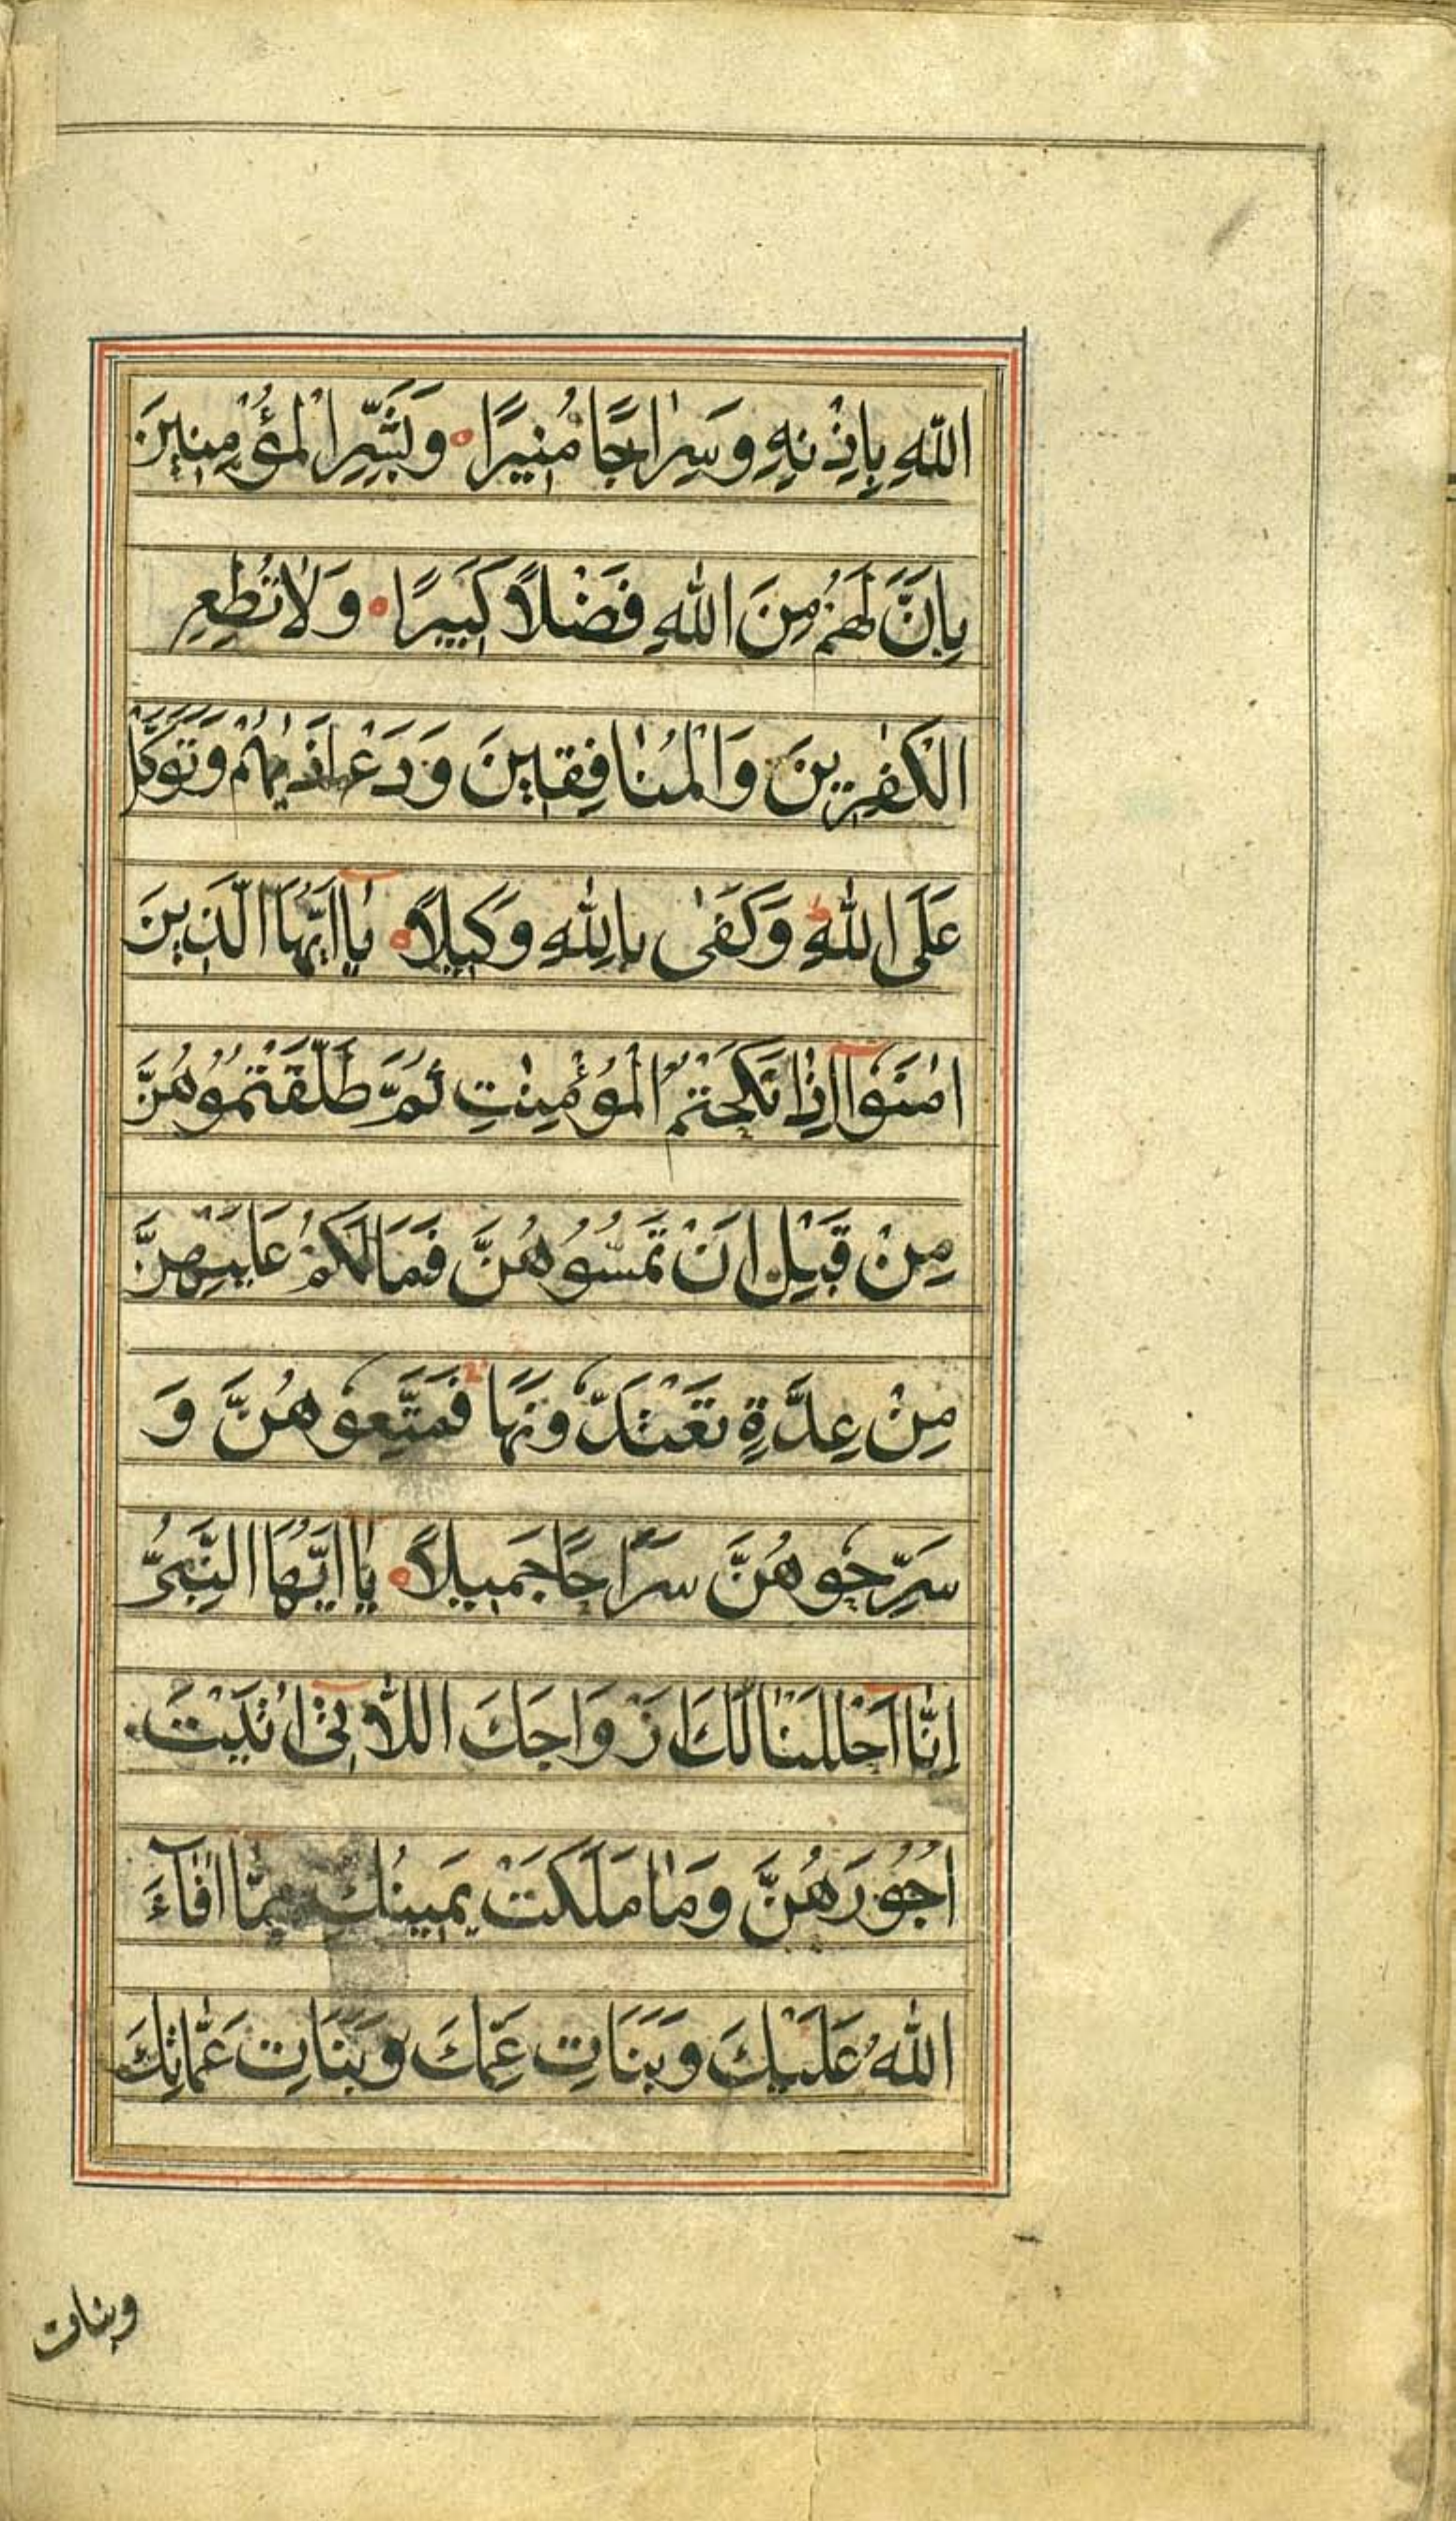 اللّٰهِ بِاِذْنِهٖ وَسِرٰاجًا مُنِيرًا وَبَشِّرِ الْمُؤْمِنِينَ
بِاَنَّ لَهُمْ مِنَ اللّٰهِ فَضْلًا كَبِيرًا وَلَا تُطِعِ
الْكٰفِرِينَ وَالْمُنٰافِقِينَ وَدَعْ اَذٰيهُمْ وَتَوَكَّلْ
عَلَى اللّٰهِ وَكَفٰى بِاللّٰهِ وَكِيلًا يٰا اَيُّهَا الَّذِينَ
اٰمَنُوا اِذٰا نَكَحْتُمُ الْمُؤْمِنٰتِ ثُمَّ طَلَّقْتُمُوهُنَّ
مِنْ قَبْلِ اَنْ تَمَسُّوهُنَّ فَمَا لَكُمْ عَلَيْهِنَّ
مِنْ عِدَّةٍ تَعْتَدُّونَهَا فَمَتِّعُوهُنَّ وَ
سَرِّحُوهُنَّ سَرَاحًا جَمِيلًا يٰا اَيُّهَا النَّبِيُّ
اِنّٰا اَحْلَلْنٰا لَكَ اَزْوَاجَكَ اللّٰاتِي اٰتَيْتَ
اُجُورَهُنَّ وَمٰا مَلَكَتْ يَمِينُكَ مِمّٰا اَفٰاءَ
اللّٰهُ عَلَيْكَ وَبَنَاتِ عَمِّكَ وَبَنَاتِ عَمّٰاتِكَ
وبنات